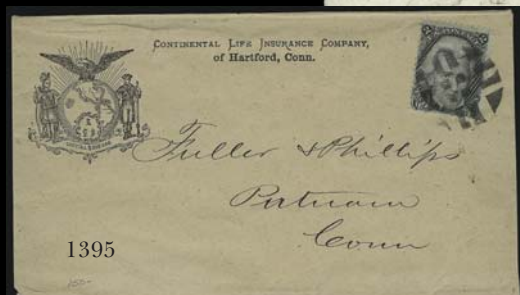 CONTINENTAL LIFE INSURANCE COMPANY,
of Hartford, Conn.
Fuller & Phillips
Putnam
Conn
1395